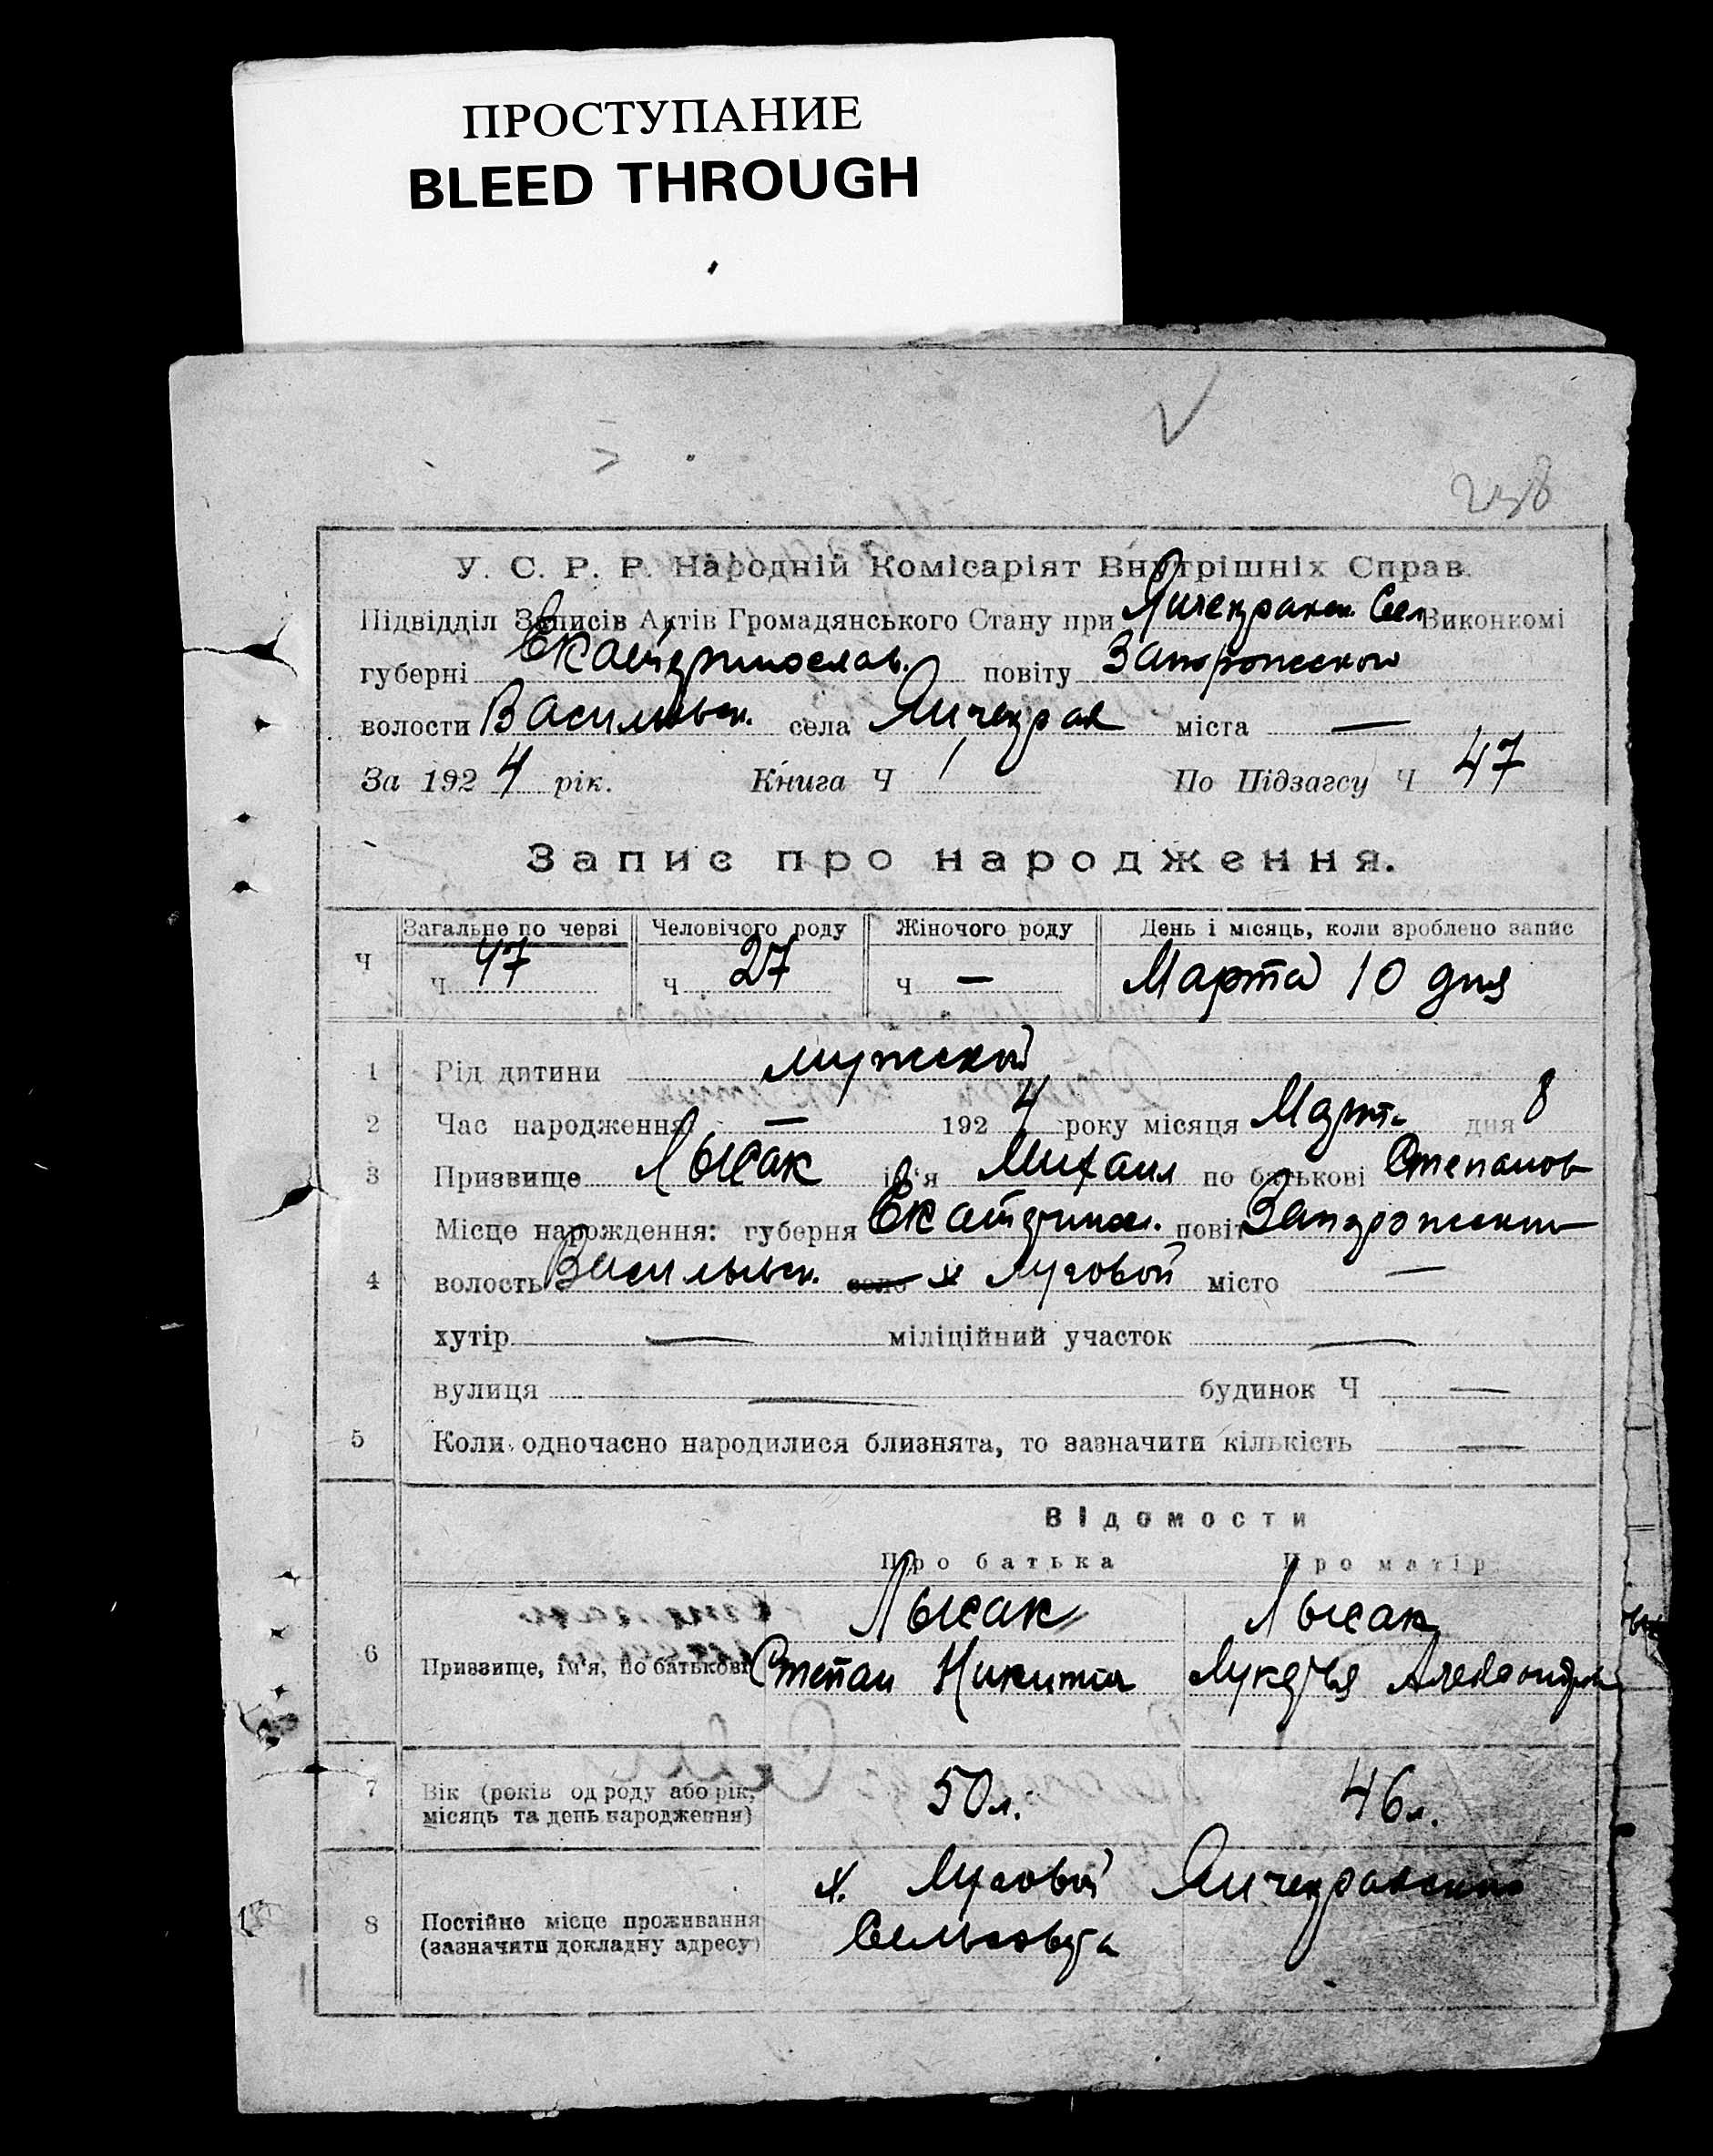 ПРОСТУПАНИЕ
BLEED THROUGH
238
У. С. Р. Р. Народній Комісаріят Внутрішніх Справ.
Підвідділ Записів Актів Громадянського Стану при Янчекракск. Сел Виконкомі
губерні Екатеринослав. повіту Запорожского
волости Васильевск. села Янчекрак міста —
За 1924 рік. Книга Ч 1 По Підзагсу Ч 47
Запис про народження.
Ч Загальне по черзі Человічого роду Жіночого роду День і місяць, коли зроблено запис
Ч 47 Ч 27 Ч — Марта 10 дня
1 Рід дитини мужской
2 Час народження — 1924 року місяця Март. дня 8
3 Призвище Лысак ім'я Михаил по батькові Степанов
Місце нарождення: губерня Екатеринос. повіт Запорожский
4 волость Васильевск. село х Луговой місто —
хутір — міліційний участок —
вулиця — будинок Ч —
5 Коли одночасно народилися близнята, то зазначити кількість —
Відомости
Про батька Про матір
Лысак Лысак
6 Призвище, ім'я, по батькові Степан Никитов Лукерья Александр
7 Вік (років од роду або рік, місяць та день народження) 50 л. 46 л.
х. Луговой Янчекракского
8 Постійне місце проживання (зазначити докладну адресу) Сельсовета